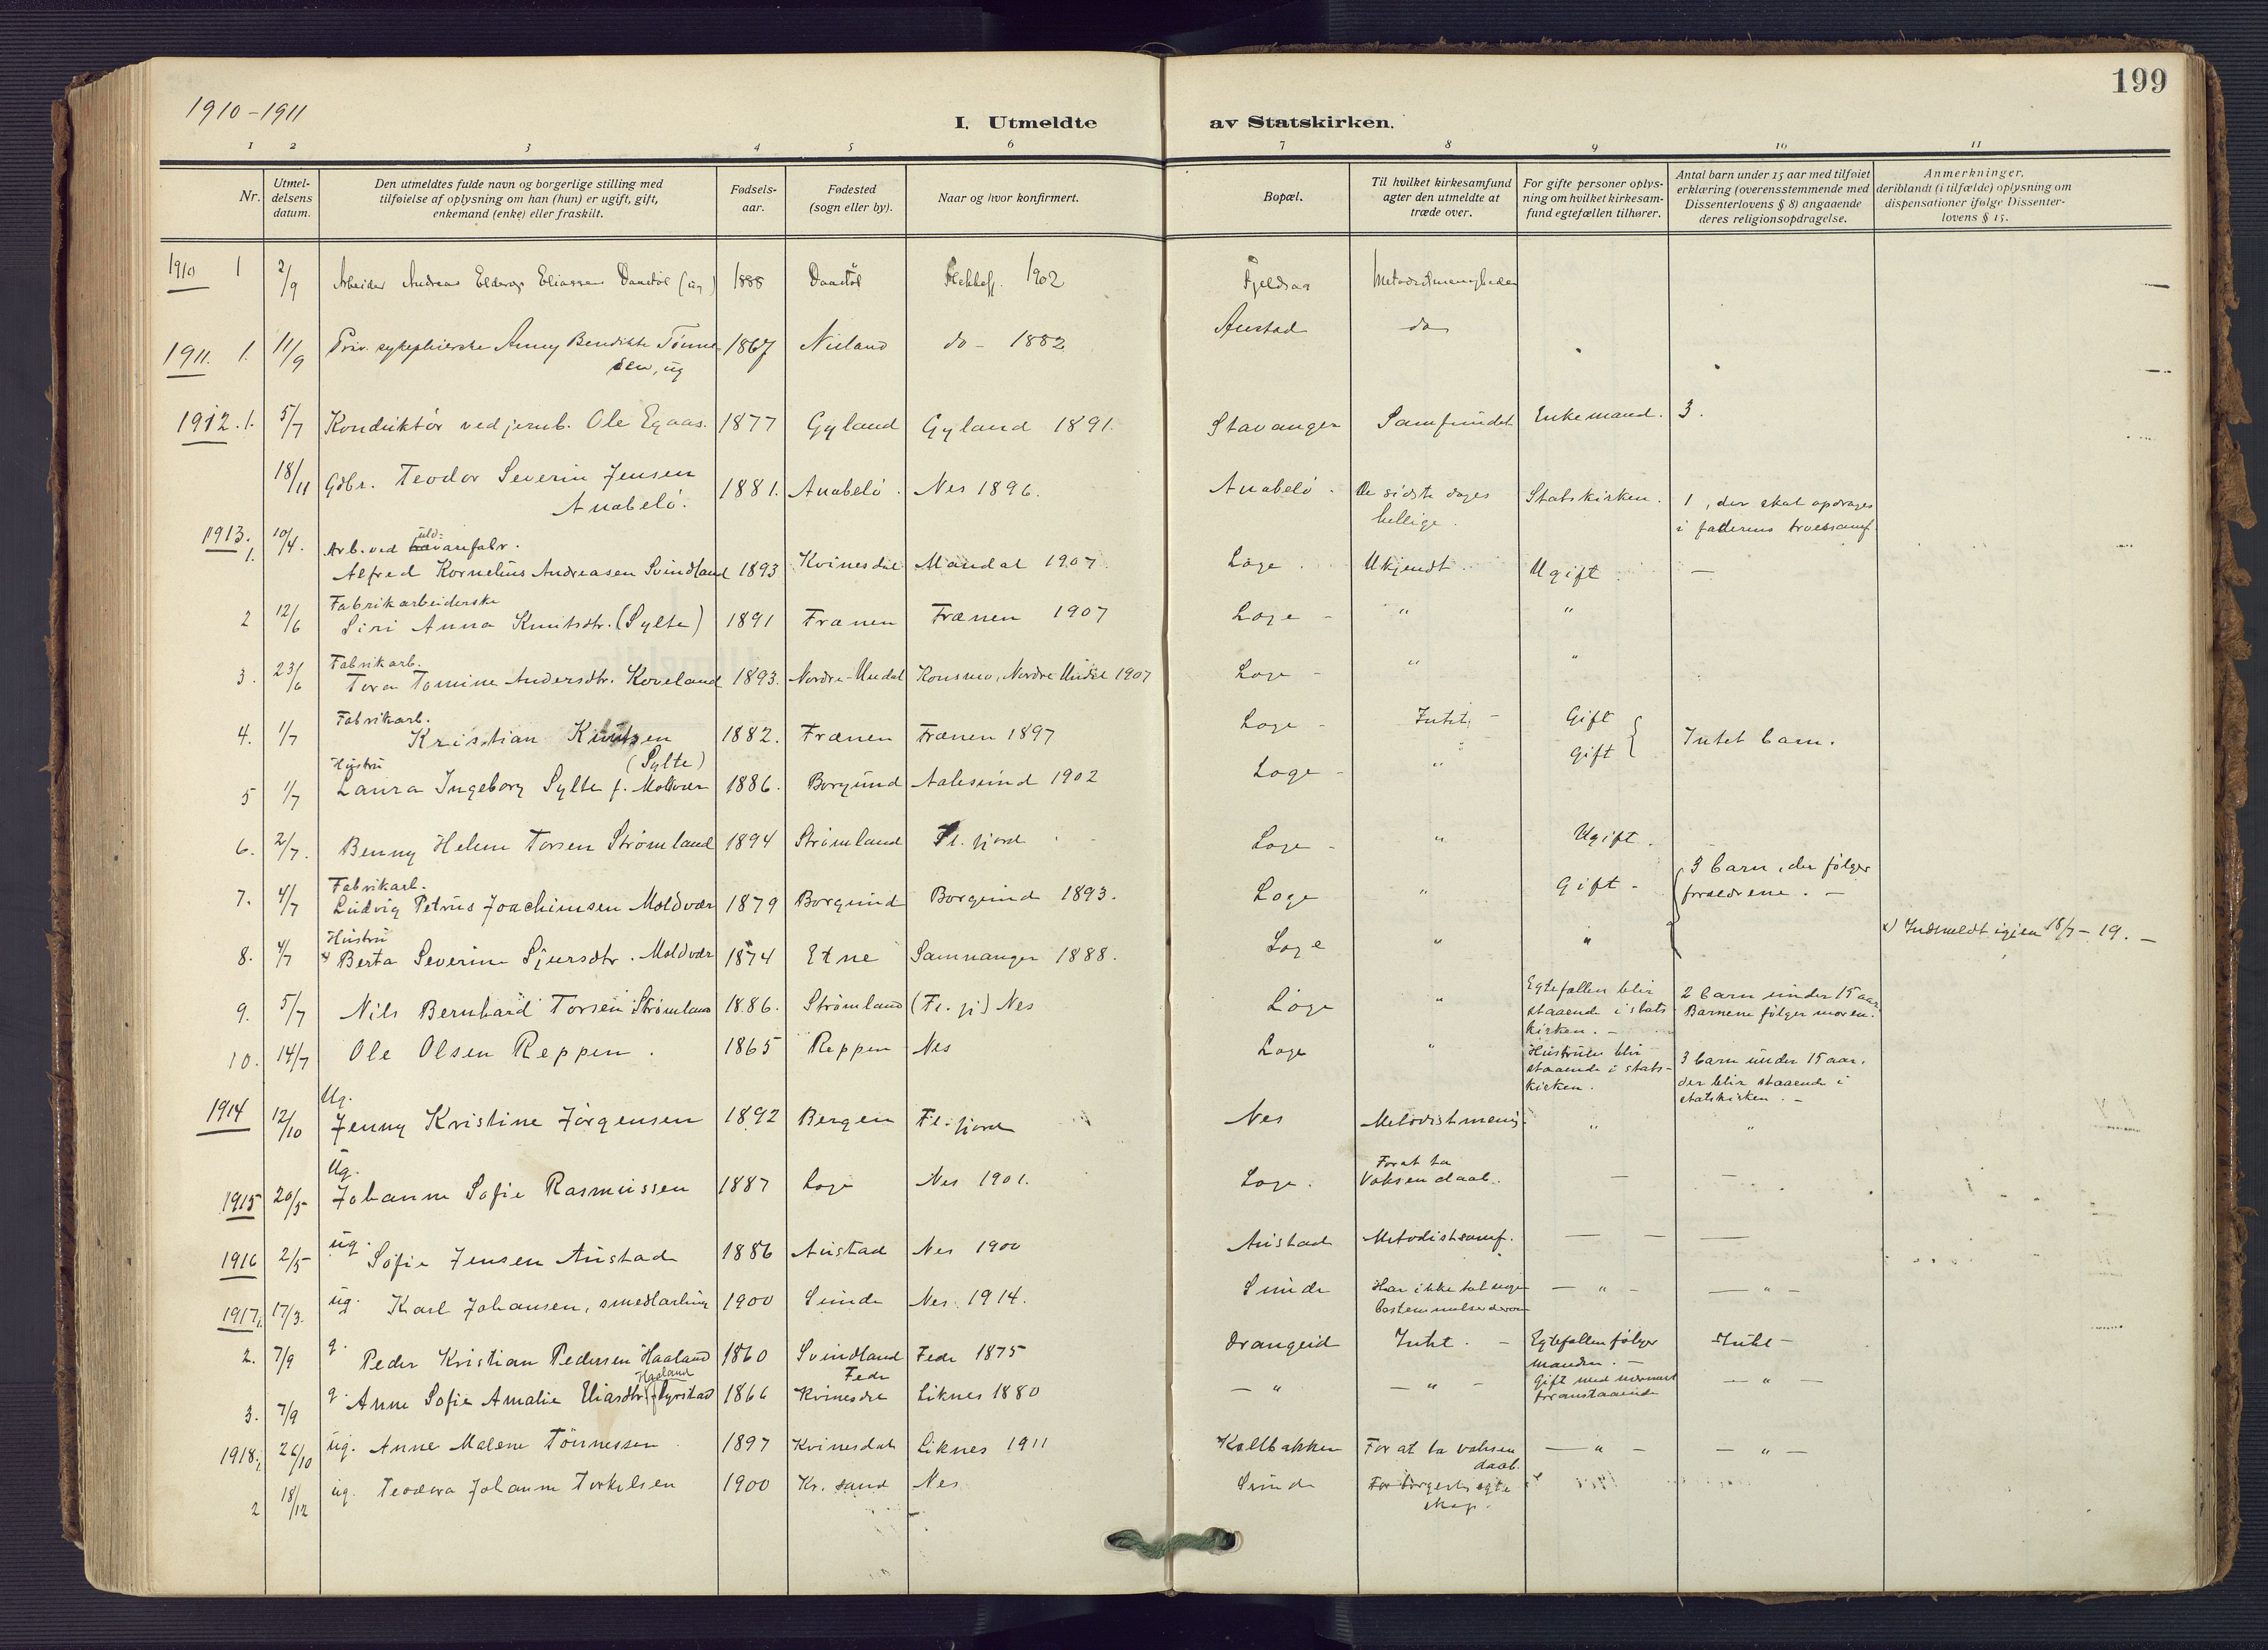 199
1910-1911
I. Utmeldte av Statskirken.
1 2 3 4 5 6 7 8 9 10 11
Nr.
Utmel-
delsens
datum.
Den utmeldtes fulde navn og borgerlige stilling med
tilføielse af oplysning om han (hun) er ugift, gift,
enkemand (enke) eller fraskilt.
Fødsels-
aar.
Fødested
(sogn eller by).
Naar og hvor konfirmert.
Bopæl.
Til hvilket kirkesamfund
agter den utmeldte at
træde over.
For gifte personer oplys-
ning om hvilket kirkesam-
fund egtefællen tilhører.
Antal barn under 15 aar med tilføiet
erklæring (overensstemmende med
Dissenterlovens § 8) angaaende
deres religionsopdragelse.
Anmerkninger,
deriblandt (i tilfælde) oplysning om
dispensationer ifølge Dissenter-
lovens § 15.
1910 1 2/9 Arbeider Andreas Eliassen Daastøl (ug) 1888 Daastøl Flekkefj. 1902 Fjeldsaa Metodistmenigheden
1911. 1. 11/9 Priv. sykepleierske Anny Bendikte Tønne- 1867 Nuland do - 1882 Austad do
sen, ug
1912. 1. 5/7 Konduktør ved jernb. Ole Egaas. 1877 Gyland Gyland 1891. Stavanger Samfundet Enkemand. 3.
18/11 Gdbr. Teodor Severin Jensen
Anabelø. 1881. Anabelø. Nes 1896. Anabelø. De sidste dages Statskirken. 1, der skal opdrages
hellige. i faderens troessamf.
1913. 10/4. Arb. ved uld-varefabr.
1. Alfred Kornelius Andreasen Svindland 1893 Kvinesdal Mandal 1907. Loge. Ukjendt. Ugift. —
Fabrikarbeiderske
2 12/6 Siri Anna Knutsdtr. (Sylte) 1891 Frænen Frænen 1907 Loge - " "
Fabrikarb.
3. 23/6 Tora Tomine Andersdtr. Koveland 1893. Nordre-Undal Konsmo, Nordre Undal 1907 Loge - " "
Fabrikarb.
4. 1/7 Kristian Knutsen 1882. Frænen Frænen 1897 Loge - Intet - Gift Intet barn.
(Sylte)
Hustru
5 1/7 Laura Ingeborg Sylte f. Moldvær 1886. Borgund Aalesund 1902 Loge - " Gift
6. 2/7. Benny Helene Torsen Strømland 1894 Strømland Fl. fjord Loge - " Ugift.
Fabrikarb.
7. 4/7 Ludvig Petrus Joachimsen Moldvær 1879 Borgund Borgund 1893. Loge " Gift - 3 barn, der følger
forældrene. -
Hustru
8. 4/7 x) Berta Severine Sjursdtr. Moldvær 1874 Etne Samnanger 1888. Loge " " x) Indmeldt igjen 18/7 - 19. -
9. 5/7 Nils Bernhard Torsen Strømland 1886. Strømland (Fl. fj) Nes Loge " Egtefællen blir 2 barn under 15 aar
staaende i stats- Barnene følger moren.
kirken. -
10. 14/7 Ole Olsen Reppen. 1865 Reppen Nes Loge " Hustruen blir 3 barn under 15 aar.
staaende i stats- der blir staaende i
kirken. statskirken. -
Ug.
1914 12/10 Jenny Kristine Jørgensen 1892 Bergen Fl. fjord Nes Metodistmenig. " "
Ug.
1915 20/5 Johanne Sofie Rasmussen 1887 Loge Nes 1901. Loge. For at ta - -
Voksendaab.
ug.
1916 2/5 Sofie Jensen Austad 1886 Austad Nes 1900 Austad Metodistsamf. — - —
1917. 17/3. ug. Karl Johansen, smedlærling 1900 Sunde Nes. 1914. Sunde Har ikke tat nogen — " - — " -
bestemmelse derom
2. 7/9 g. Peder Kristian Pedersen Haaland 1860 Svindland Fede 1875 Drangeid Intet. - Egtefællen følger Intet -
Fede manden. -
3. 7/9 g. Anne Sofie Amalie Eliasdtr. Haaland f. Fyristad 1866 Kvinesdal Liknes 1880 — " — " - Gift med nærmest — " —
foranstaaende
1918. 26/10 ug. Anne Malene Tønnessen 1897 Kvinesdal Liknes 1911 Kallbakken For at ta voksen — " - — " —
daab.
2 18/12 ug. Teodora Johanne Torkelsen 1900 Kr. sand Nes Sunde For borgerlig egte
skap.